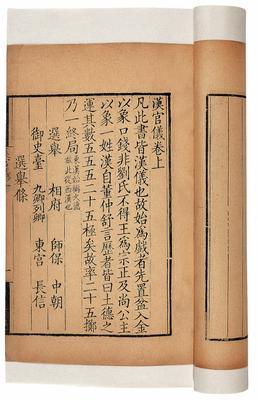 漢官儀卷上
凡此書皆漢儀也故始為戲者先置盆入金
以象口錢非劉氏不得王為宗正及尚公主
以象一姓漢自董仲舒言歷者皆曰土德之
運其數五五五二十五極矣故率二十五擲
乃一終局
選舉　相府　師保　中朝
御史臺　九卿列卿　東宮　長信
選舉條